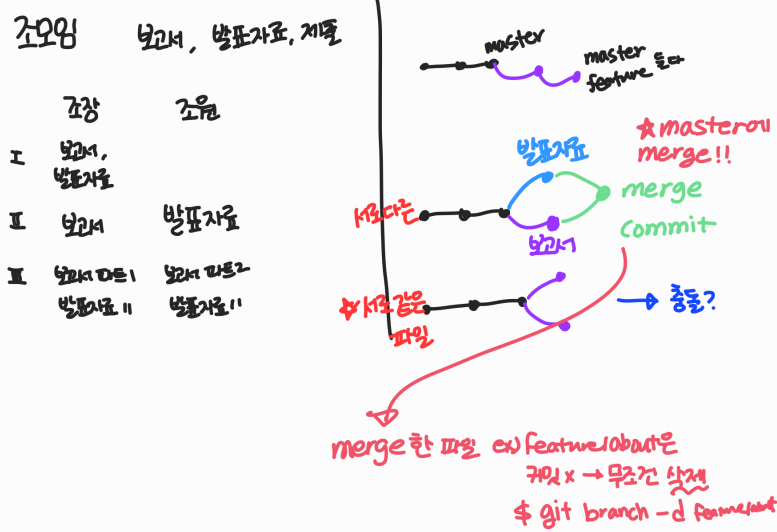 조모임 보고서, 발표자료, 제출
조장 조원
I 보고서,
발표자료
II 보고서 발표자료
III 보고서 파트1 보고서 파트2
발표자료 " 발표자료 "
master
master
feature 둘다
☆master에
merge!!
발표자료
merge
commit
서로다른
보고서
☆서로같은
파일
→ 충돌?
merge한 파일 ex)feature/about은
커밋x → 무조건 삭제
$ git branch -d feature/about